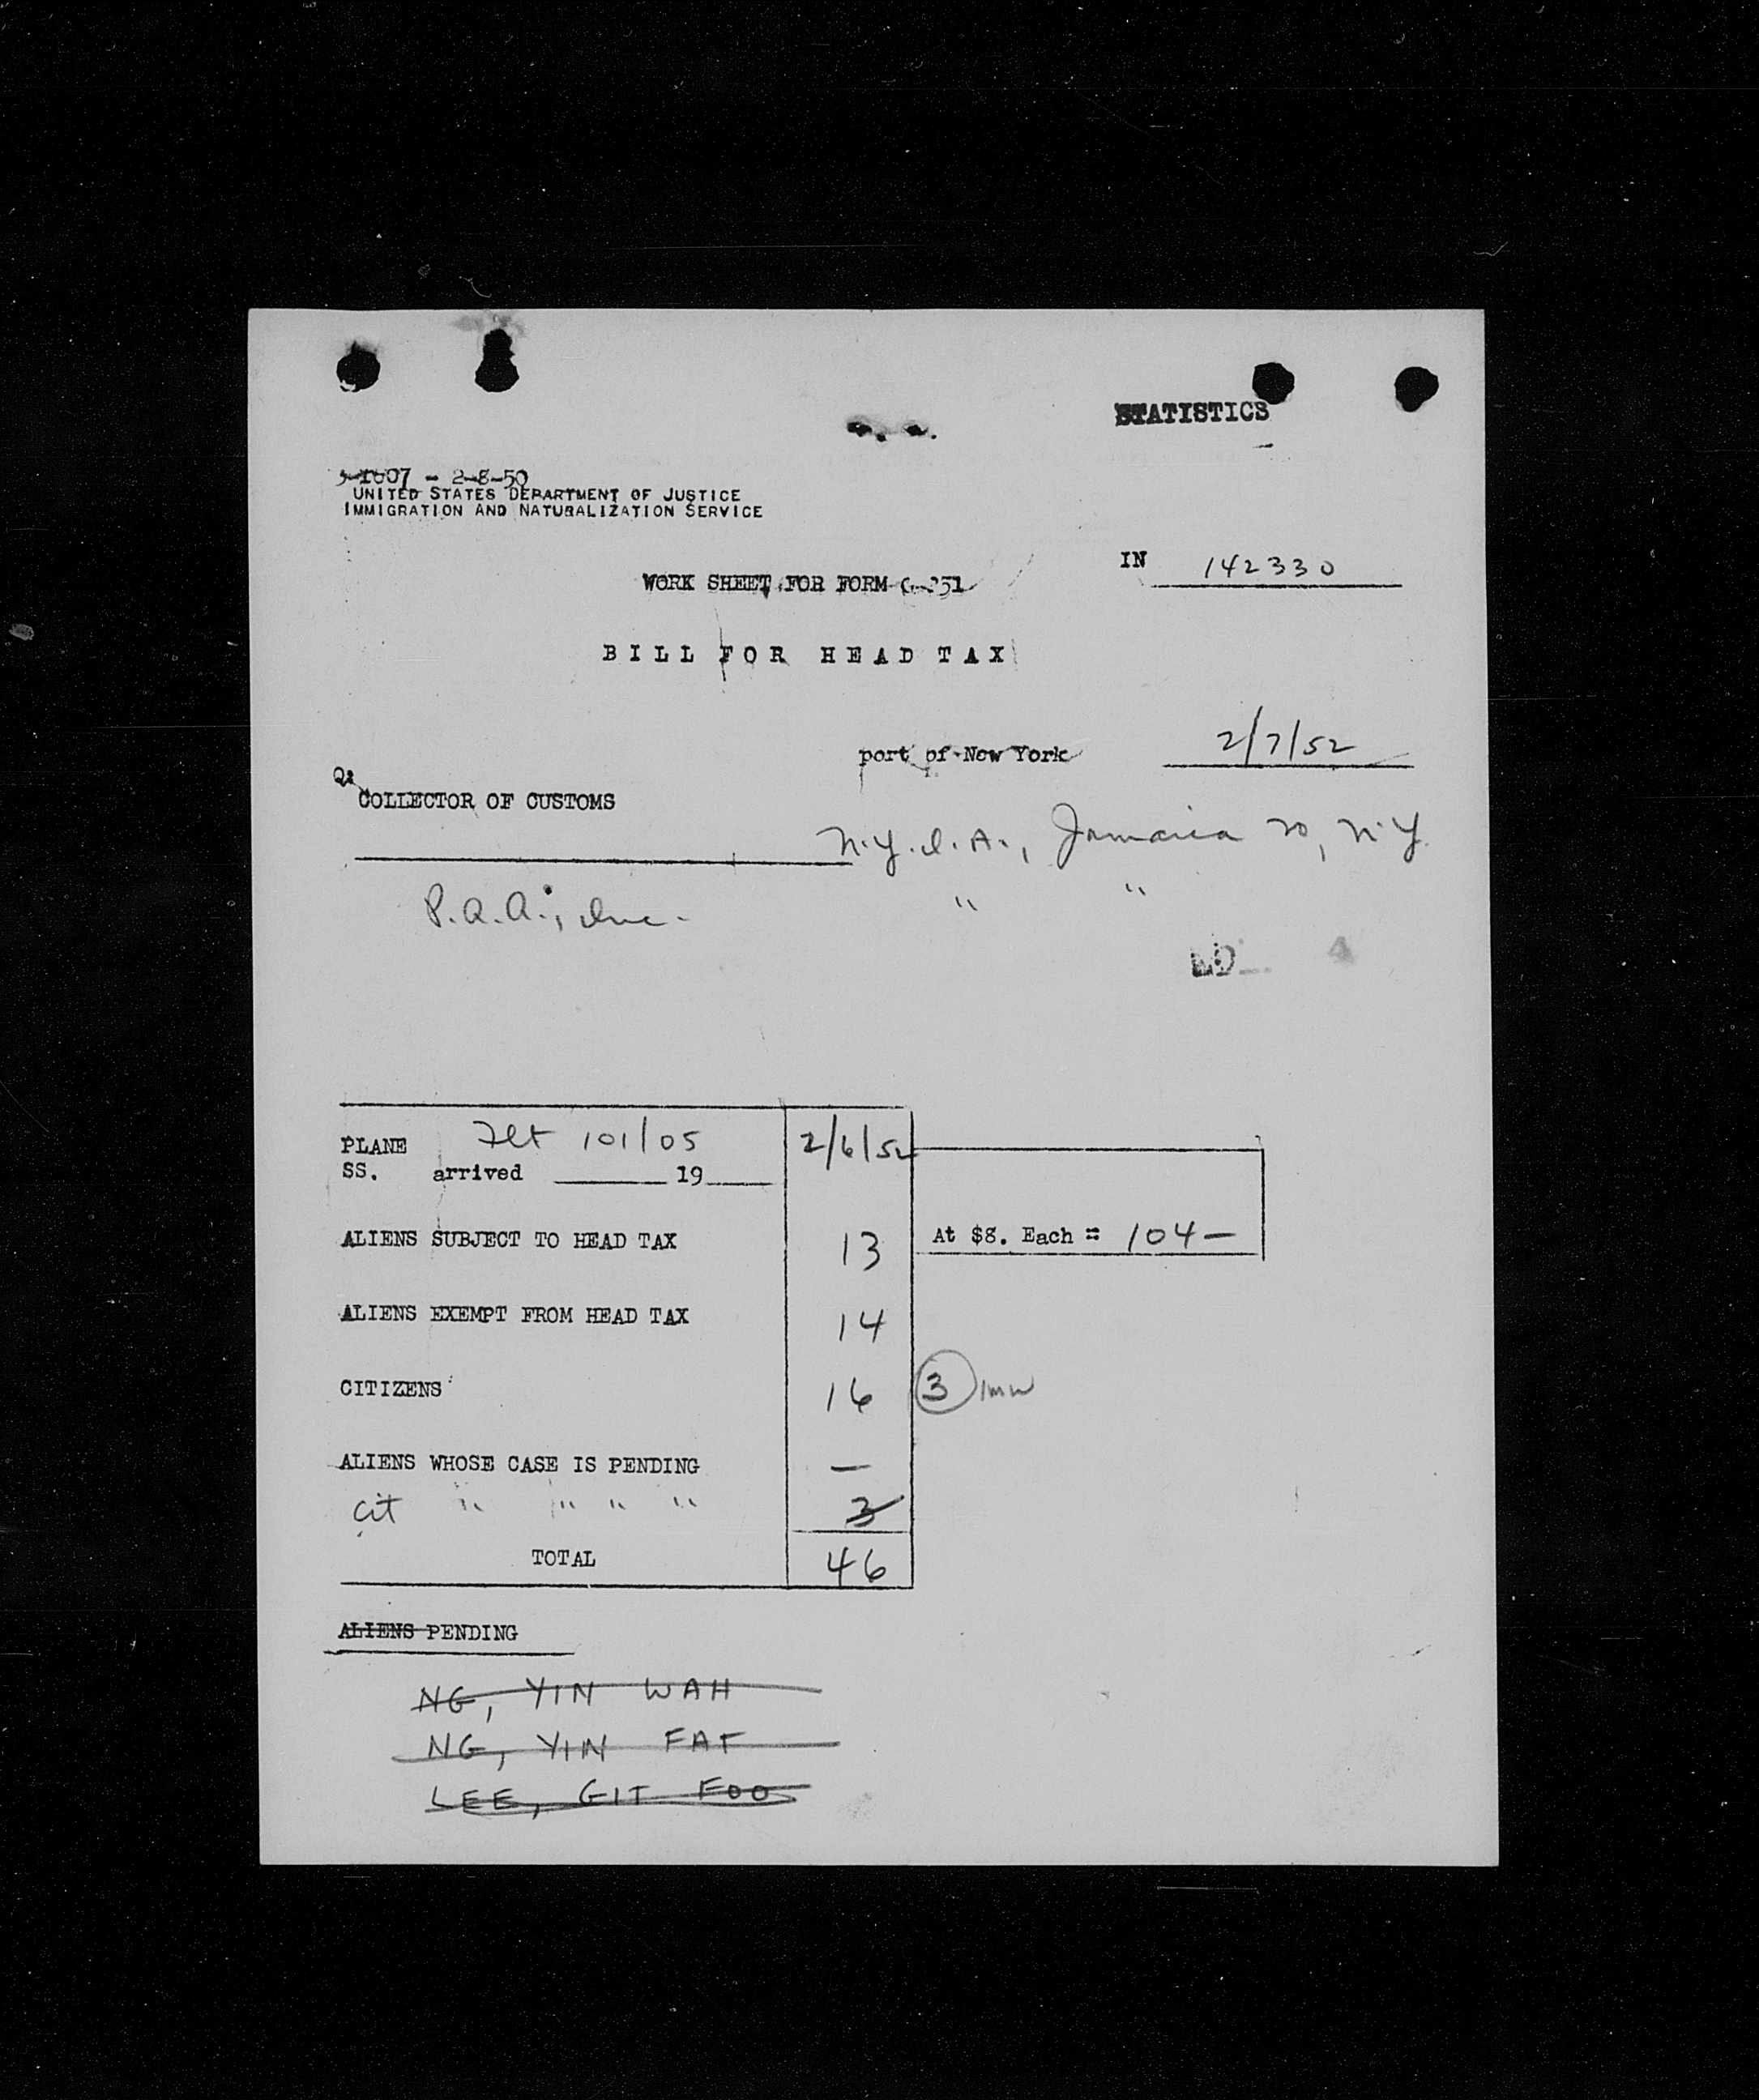 STATISTICS
2-8-50
UNITED STATES DEPARTMENT OF JUSTICE
IMMIGRATION AND NATURALIZATION SERVICE
IN 142330
WORK SHEET FOR FORM
BILL FOR HEAD TAX
port of New York 2/7/52
COLLECTOR OF CUSTOMS
N.Y.I.A., Jamaica 20, N.Y.
P.A.A., Inc. " "
PLANE Flt 101/05 2/6/52
SS. arrived 19
ALIENS SUBJECT TO HEAD TAX 13 At $8. Each = 104-
ALIENS EXEMPT FROM HEAD TAX 14
CITIZENS 16 3
ALIENS WHOSE CASE IS PENDING -
Cit " " " " 3
TOTAL 46
ALIENS PENDING
NG, YIN WAH
NG, YIN FAT
LEE, GIT FOO